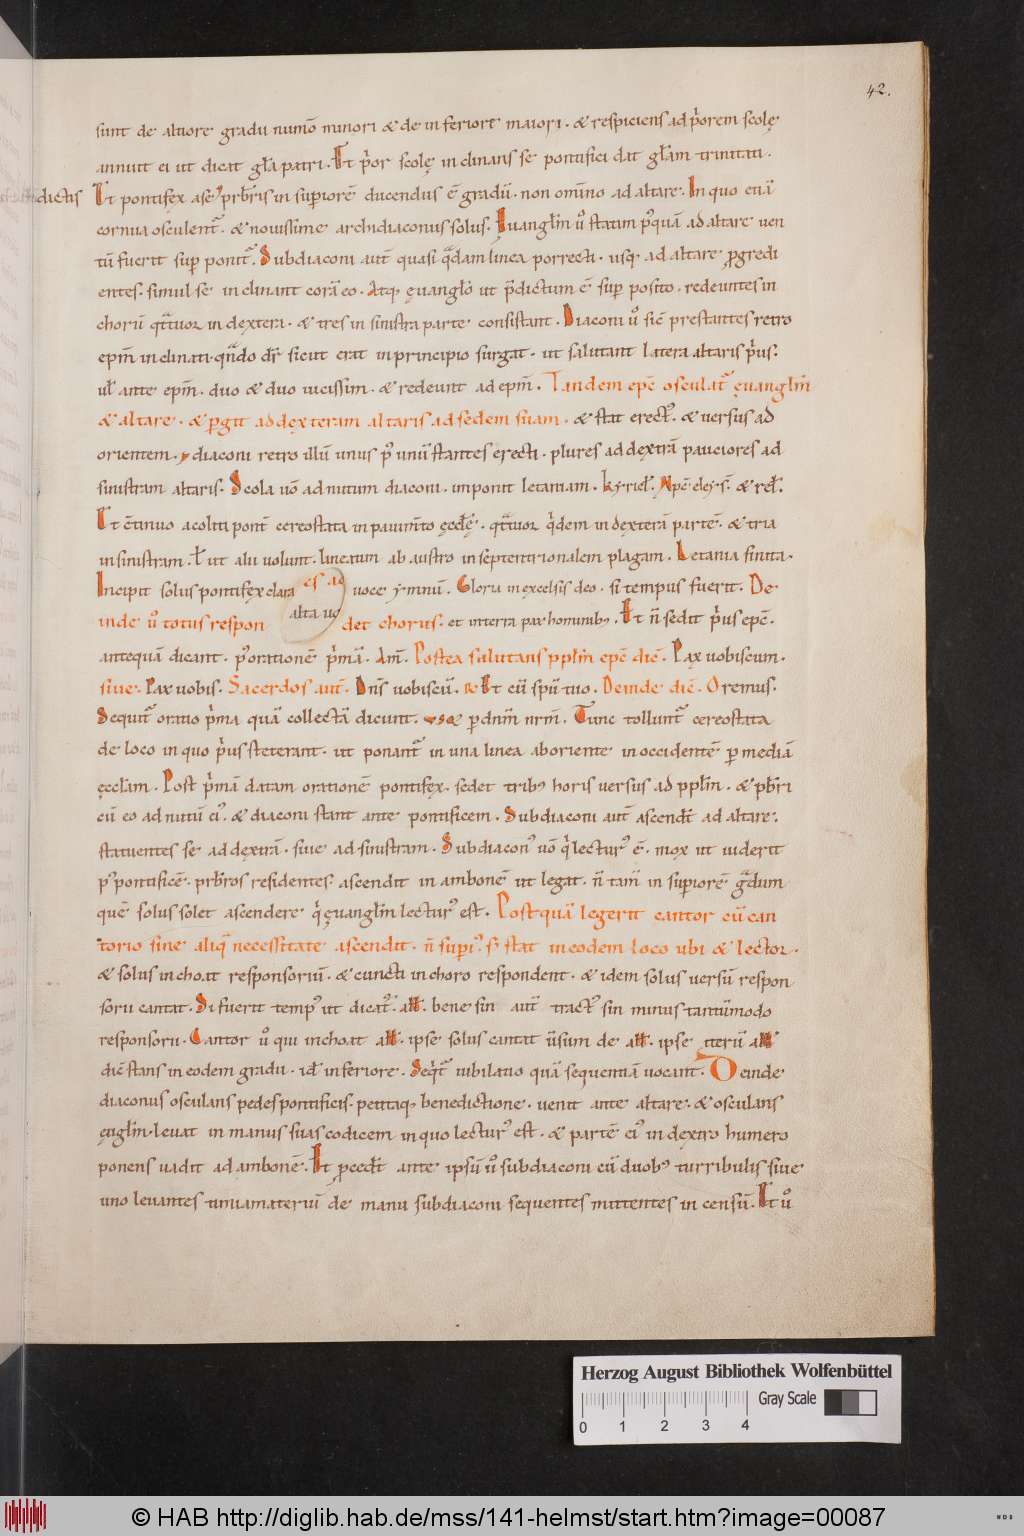 42.
sunt de altiore gradu num̄o minori & de inferiore maiori. & respiciens ad p̄orem scolę
annuit ei ut dicat gl̄a patri. Et p̄or scolę inclinans se pontifici dat gl̄am trinitati.
dictis Et pontifex ase pr̄bris in sup̄iorē ducendus ē gradū. non om̄ino ad altare. In quo etiā
cornua osculent̄. & nouissime archidiaconus solus. Euangl̄m ū statim p̄quā ad altare uen
tū fuerit sup̄ ponit̄. Subdiaconi aut̄ quasi q̄dam linea porrecti. usq; ad altare p̄gredi
entes. simul se inclinant corā eo. Atq; ęuangl̄o ut p̄dictum ē sup̄ posito. redeuntes in
chorū q̄ttuor in dextera. & tres in sinistra parte consistant. Diaconi ū sic̄ prestantes retro
ep̄m inclinati. q̄ndo dr̄ sicut erat in principio surgat. ut salutant latera altaris p̄us.
ul̄ ante ep̄m. duo & duo uicissim. & redeunt ad ep̄m. Tandem epc̄ osculat̄ ęuangl̄m
& altare. & p̄git ad dexteram altaris ad sedem suam. & stat erect̄. & uersus ad
orientem. & diaconi retro illū unus p̄ unū stantes erecti. plures ad dextrā pauciores ad
sinistram altaris. Scola uō ad nutum diaconi. imponit letaniam. kyriel̄. Xpē eleys̄. & rel̄.
Et c̄tinuo acoliti pont̄ cereostata in pauim̄to ęccl̄ę. q̄ttuor q̄dem in dexterā partē. & tria
in sinistram. ł ut alii uolunt. linearum ab austro in septentrionalem plagam. Letania finita.
Incipit solus pontifex clara uoce ymnū. Gloria in excelsis deo. si tempus fuerit. De
alta uo
inde ū totus respondet chorus. et in terra pax hominibus. Et n̄ sedit p̄us epc̄.
antequā dicant. p̄ orationē p̄mā. Am̄. Postea salutans ppl̄m epc̄ dic̄. Pax uobiscum.
siue. Pax uobis. Sacerdos aut̄. Dn̄s uobiscū. Et cū spū tuo. Deinde dic̄. Oremus.
Sequit̄ oratio p̄ma quā collectā dicunt. p̄ dn̄m nr̄m. Tunc tollunt̄ cereostata
de loco in quo p̄us steterant. ut ponant̄ in una linea ab oriente in occidentē p̄ mediā
ęccl̄am. Post p̄mā datam orationē pontifex. sedet trib; horis uersus ad ppl̄m. & pb̄ri
cū eo ad nutū ei᾽. & diaconi stant ante pontificem. Subdiaconi aut̄ ascend̄t ad altare.
statuentes se ad dextrā. siue ad sinistram. Subdiacon᾽ uō q̄ lectur᾽ ē. mox ut uiderit
p᾽ pontificē. pr̄bros residentes. ascendit in ambonē ut legat. n̄ tam̄ in sup̄iorē ḡdum
quē solus solet ascendere q̄ ęuangl̄m lectur᾽ est. Postquā legerit cantor cū can
torio sine aliq̄ necessitate ascendit. n̄ sup̄i᾽. s; stat in eodem loco ubi & lector.
& solus inchoat responsoriū. & cuncti in choro respondent. & idem solus uersū respon
sorii cantat. Si fuerit temp᾽ ut dicat̄. all. bene sin aut̄ tract᾽ sin minus tantūmodo
responsorii. Cantor ū qui inchoat all. ipse solus cantat ūsum de all. ipse iterū all
dic̄ stans in eodem gradu. id̄ inferiore. Seq̄t̄ iubilatio quā sequentiā uocant. Deinde
diaconus osculans pedes pontificis. petitaq; benedictione. uenit ante altare. & osculans
ęugl̄m. leuat in manus suas codicem in quo lectur᾽ est. & partē ei᾽ in dextro humero
ponens uadit ad ambonē. Et p̄ced̄t ante ipsū ū subdiaconi cū duob; turribulis siue
uno leuantes timiamateriū de manu subdiaconi sequentes mittentes incensū. Et ū
Herzog August Bibliothek Wolfenbüttel
Gray Scale
0 1 2 3 4
© HAB http://diglib.hab.de/mss/141-helmst/start.htm?image=00087